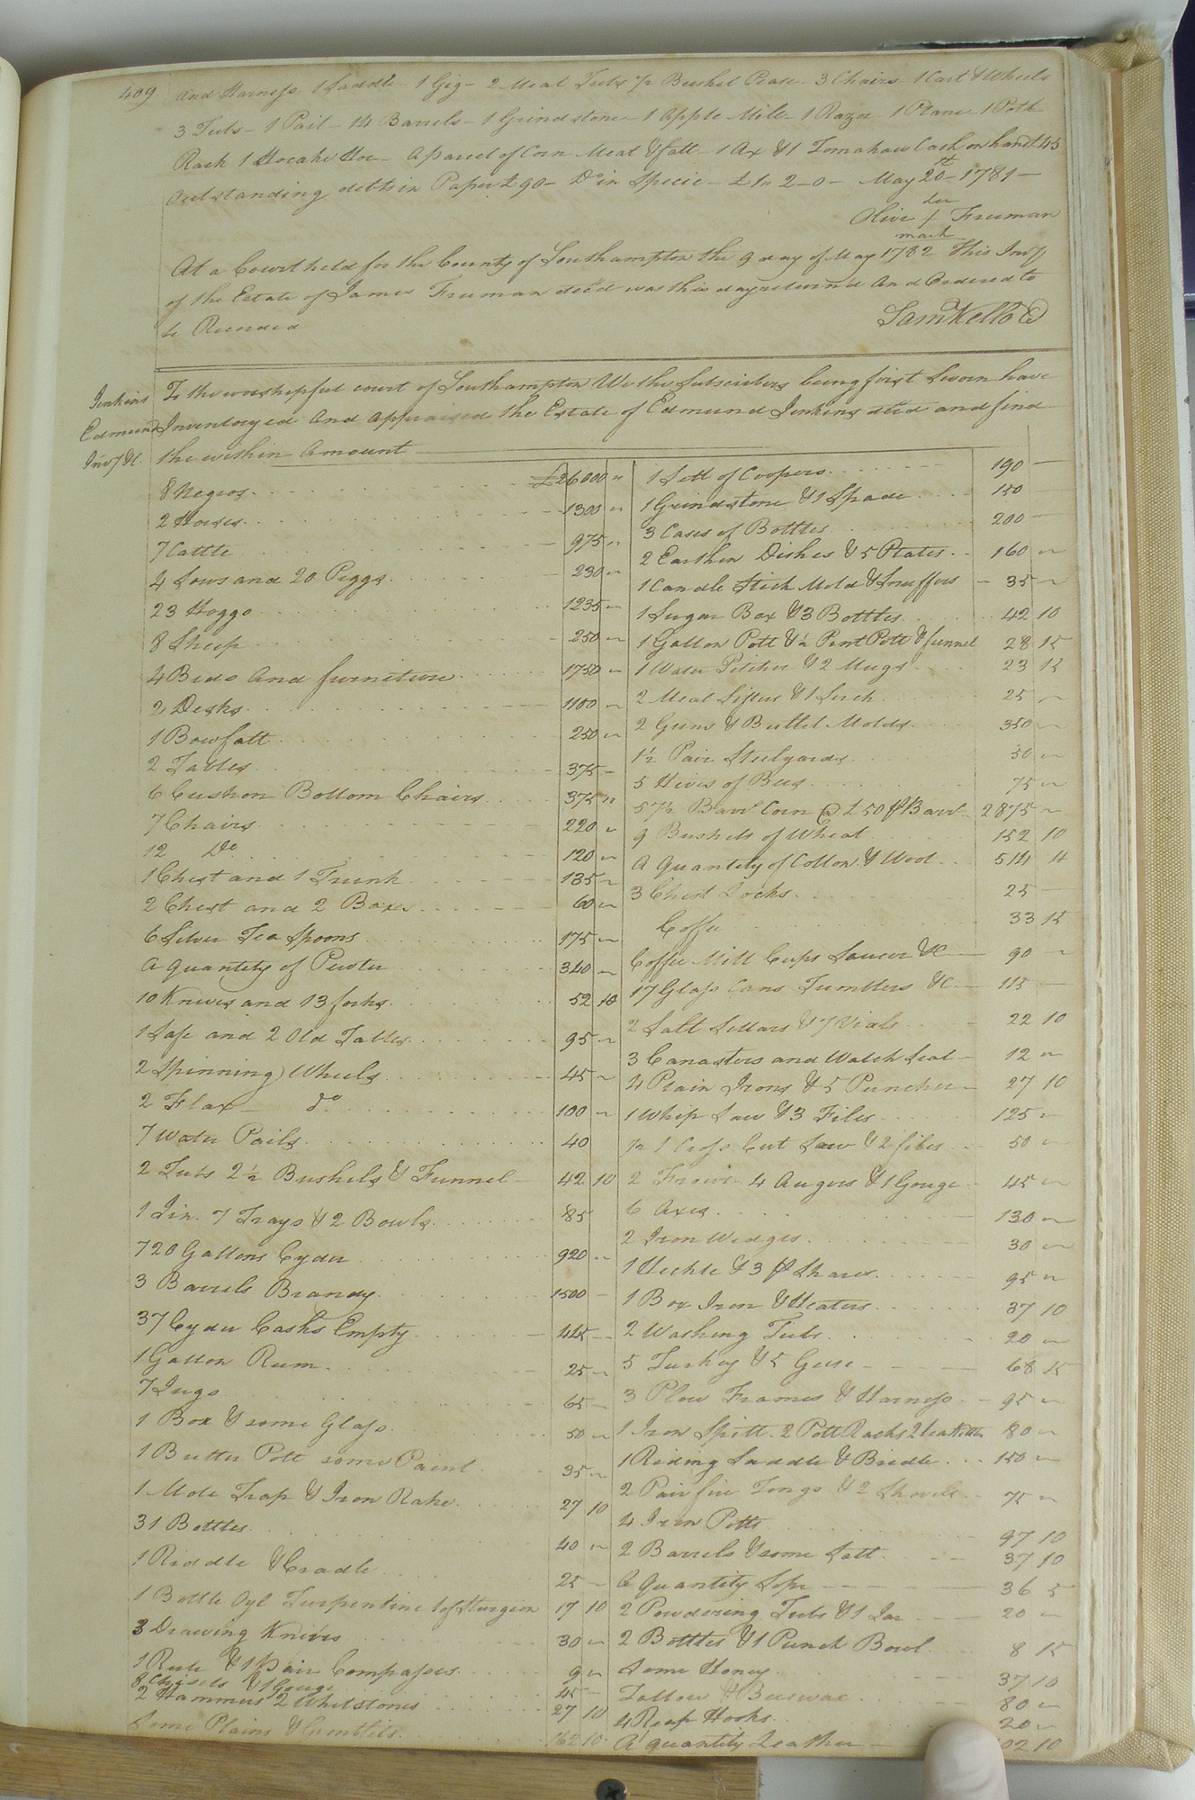 409
and Harness 1 Saddle 1 Gig - 2 Meal Tubs ½ Bushel Pease 3 Chairs 1 Cart & Wheels
3 Tubs - 1 Pail - 14 Barrels - 1 Grindstone - 1 Apple Mill - 1 Razor 1 Plane 1 Pott
Rack 1 Hoe - A parcel of Corn Meat & fatt 1 Ax & 1 Tomahaw Cash on hand £45
Outstanding debts in Paper £90 - Do in Specie - £1 2 - 0 - May 20th 1781 -
her
Olive X Freeman
mark
At a Court held for the County of Southampton the 9 day of May 1782 This Invy
of the Estate of James Freeman decd was this day returnd And Ordered to
be Recorded
Sam Kello C
Jenkins
Edmund
Invy &c
To the worshipful court of Southampton We the Subscribers being first Sworn have
Inventoryed And Appraised the Estate of Edmund Jenkins decd and find
the within Amount
8 Negros £26000 "
2 Horses 1300 "
7 Cattle 975 "
4 Sows and 20 Piggs 230 "
23 Hoggs 1235 "
8 Sheep 250 "
4 Beds And furniture 1750 "
2 Desks 1100 "
1 Bowfatt 250 "
2 Tables 375 -
6 Cushon Bottom Chairs 375 "
7 Chairs 220 "
12 Do 120 "
1 Chest and 1 Trunk 135 "
2 Chest and 2 Boxes 60 "
6 Silver Tea Spoons 175 "
A quantity of Pewter 340 "
10 Knives and 13 forks 52 10
1 Safe and 2 Old Tables 95 "
2 Spinning Wheels 45 "
2 Flax - do 100 "
7 Water Pails 40
2 Tubs 2 ½ Bushels & Funnel 42 10
1 7 Trays & 2 Bowls 85
720 Gallons Cyder 920 "
3 Barrels Brandy 1500 -
37 Cyder Casks Empty 445 -
1 Gallon Rum 25 "
7 Jugs 65 -
1 Box & some Glass 50 "
1 Butter Pott some Paint 35 "
1 Mole Trap & Iron Rake 27 10
31 Bottles 40 "
1 Riddle & Cradle 25 "
1 Bottle Oyl Turpentine 1 of Sturgeon 17 10
3 Drawing Knives 30 "
1 Rule & 1 Pair Compasses 9 "
8 Chisels & 1 Gouge 45 -
2 Hammers 2 Whetstones 27 10
Some Plains & 162 10
1 Sett of Coopers 190 -
1 Grindstone & 1 Spade 150
3 Cases of Bottles 200 -
2 Earthen Dishes & 5 Plates 160 "
1 Candle Stick Mold & Snuffers 35 "
1 Sugar Box & 3 Bottles 42 10
1 Gallon Pott & ½ Pint Pott & funnel 28 15
1 Water Pitcher & 2 Mugs 23 15
2 Meal Sifters & 1 Serch 25 "
2 Guns & Bullet Molds 350 "
1½ Pair Steelyards 50 "
5 Hives of Bees 75 "
57½ Barrl Corn @ £50 ℔ Barrl 2875 "
9 Bushels of Wheat 152 10
A Quantity of Cotton & Wool 514 4
3 Chest Locks 25
Coffee 33 15
Coffee Mill Cups Saucer &c 90 "
17 Glass Cans Tumblers &c 115 -
2 Salt Sellars & 7 Vials 22 10
3 Canasters and Watch Seal 12 "
4 Plain Irons & 5 Punches 27 10
1 Whip Saw & 3 Files 125 "
1 Cross Cut Saw & 2 files 50 "
2 Frows 4 Augers & 1 Gouge 45 "
6 Axes 130 "
2 Iron Wedges 30 "
1 Heckle & 3 Shares 95 "
1 Box Iron & Heaters 37 10
2 Washing Tubs 20 "
5 Turkey & 5 Geese 68 15
3 Plow Frames & Harness 95 "
1 Iron Spitt 2 Pott Racks 2 tea Kittles 80 "
1 Riding Saddle & Bridle 150 "
2 Pair fire Tongs & 2 Shovels 75 "
4 Iron Potts 97 10
2 Barrels & some Salt 37 10
A quantity Sope 36 5
2 Powdering Tubs & 1 Jar 20 "
2 Bottles & 1 Punch Bowl 8 15
Some Honey 37 10
Tallow & Beeswax 80 "
4 Reap Hooks 20 "
A quantity Leather 10